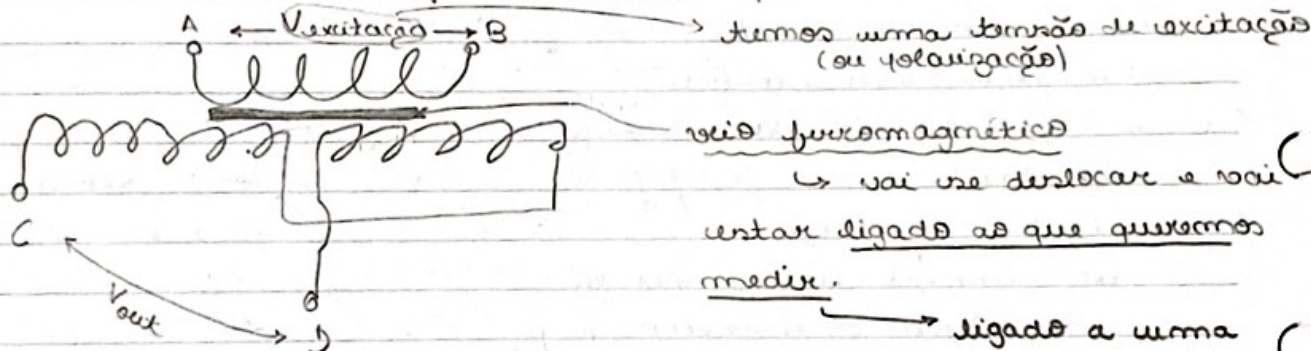 A ← Vexcitação → B → temos uma tensão de excitação
(ou polarização)
veio ferromagnético
↳ vai se deslocar e vai
estar ligado ao que queremos
medir.
→ ligado a uma
C
Vout
D